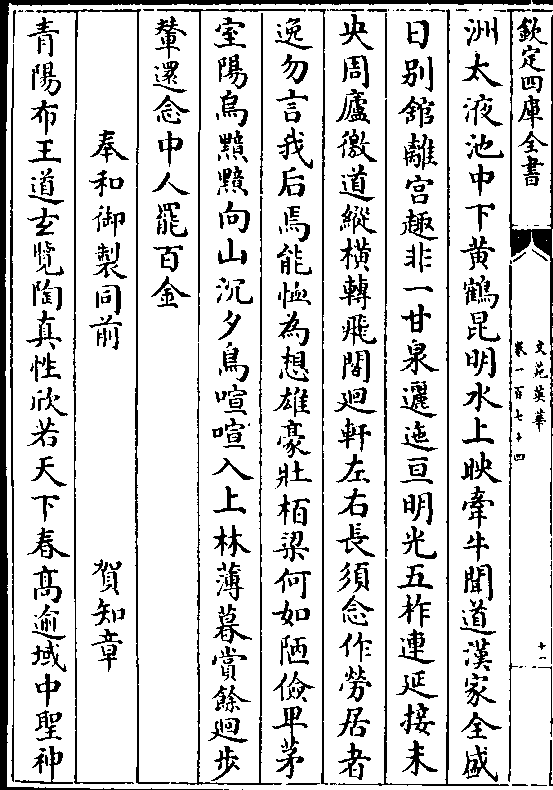 欽定四庫全書
文苑英華
卷一百七十四
十一
洲太液池中下黄鶴昆明水上映牽牛聞道漢家全盛
日别館離宫趣非一甘泉邐迤亘明光五柞連延接未
央周廬徼道縱横轉飛閣廻軒左右長須念作勞居者
逸勿言我后焉能恤為想雄豪壯栢梁何如陋儉卑茅
室陽烏黯黯向山沉夕鳥喧喧入上林薄暮賞餘廻步
輦還念中人罷百金
奉和御製同前
賀知章
青陽布王道玄覽陶真性欣若天下春髙逾域中聖神